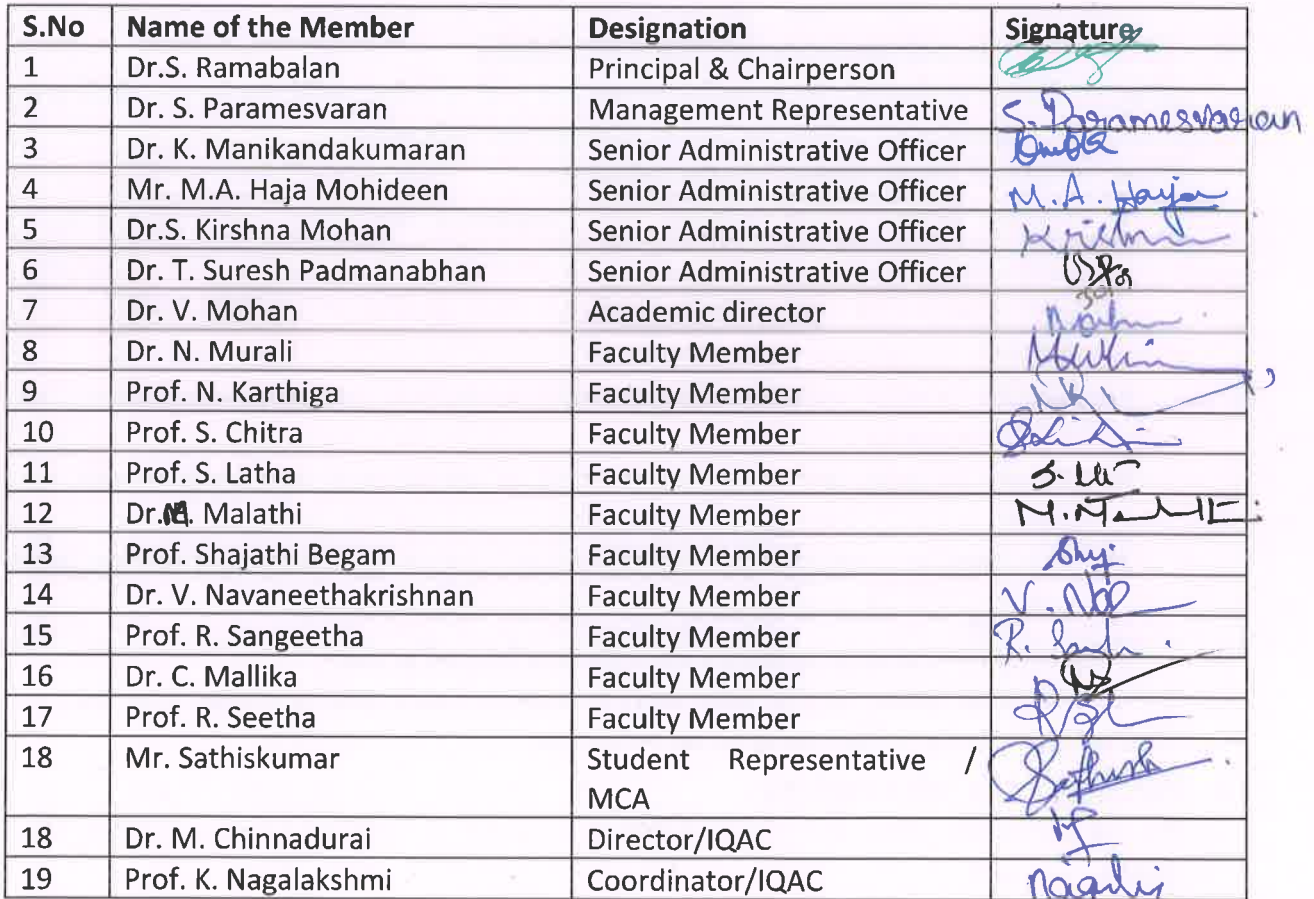 S.No Name of the Member Designation Signature
1 Dr.S. Ramabalan Principal & Chairperson
2 Dr. S. Paramesvaran Management Representative S. Paramesvaran
3 Dr. K. Manikandakumaran Senior Administrative Officer
4 Mr. M.A. Haja Mohideen Senior Administrative Officer M.A. Haja
5 Dr.S. Kirshna Mohan Senior Administrative Officer
6 Dr. T. Suresh Padmanabhan Senior Administrative Officer
7 Dr. V. Mohan Academic director
8 Dr. N. Murali Faculty Member
9 Prof. N. Karthiga Faculty Member
10 Prof. S. Chitra Faculty Member
11 Prof. S. Latha Faculty Member
12 Dr.M. Malathi Faculty Member
13 Prof. Shajathi Begam Faculty Member
14 Dr. V. Navaneethakrishnan Faculty Member
15 Prof. R. Sangeetha Faculty Member
16 Dr. C. Mallika Faculty Member
17 Prof. R. Seetha Faculty Member
18 Mr. Sathiskumar Student Representative /
MCA
18 Dr. M. Chinnadurai Director/IQAC
19 Prof. K. Nagalakshmi Coordinator/IQAC